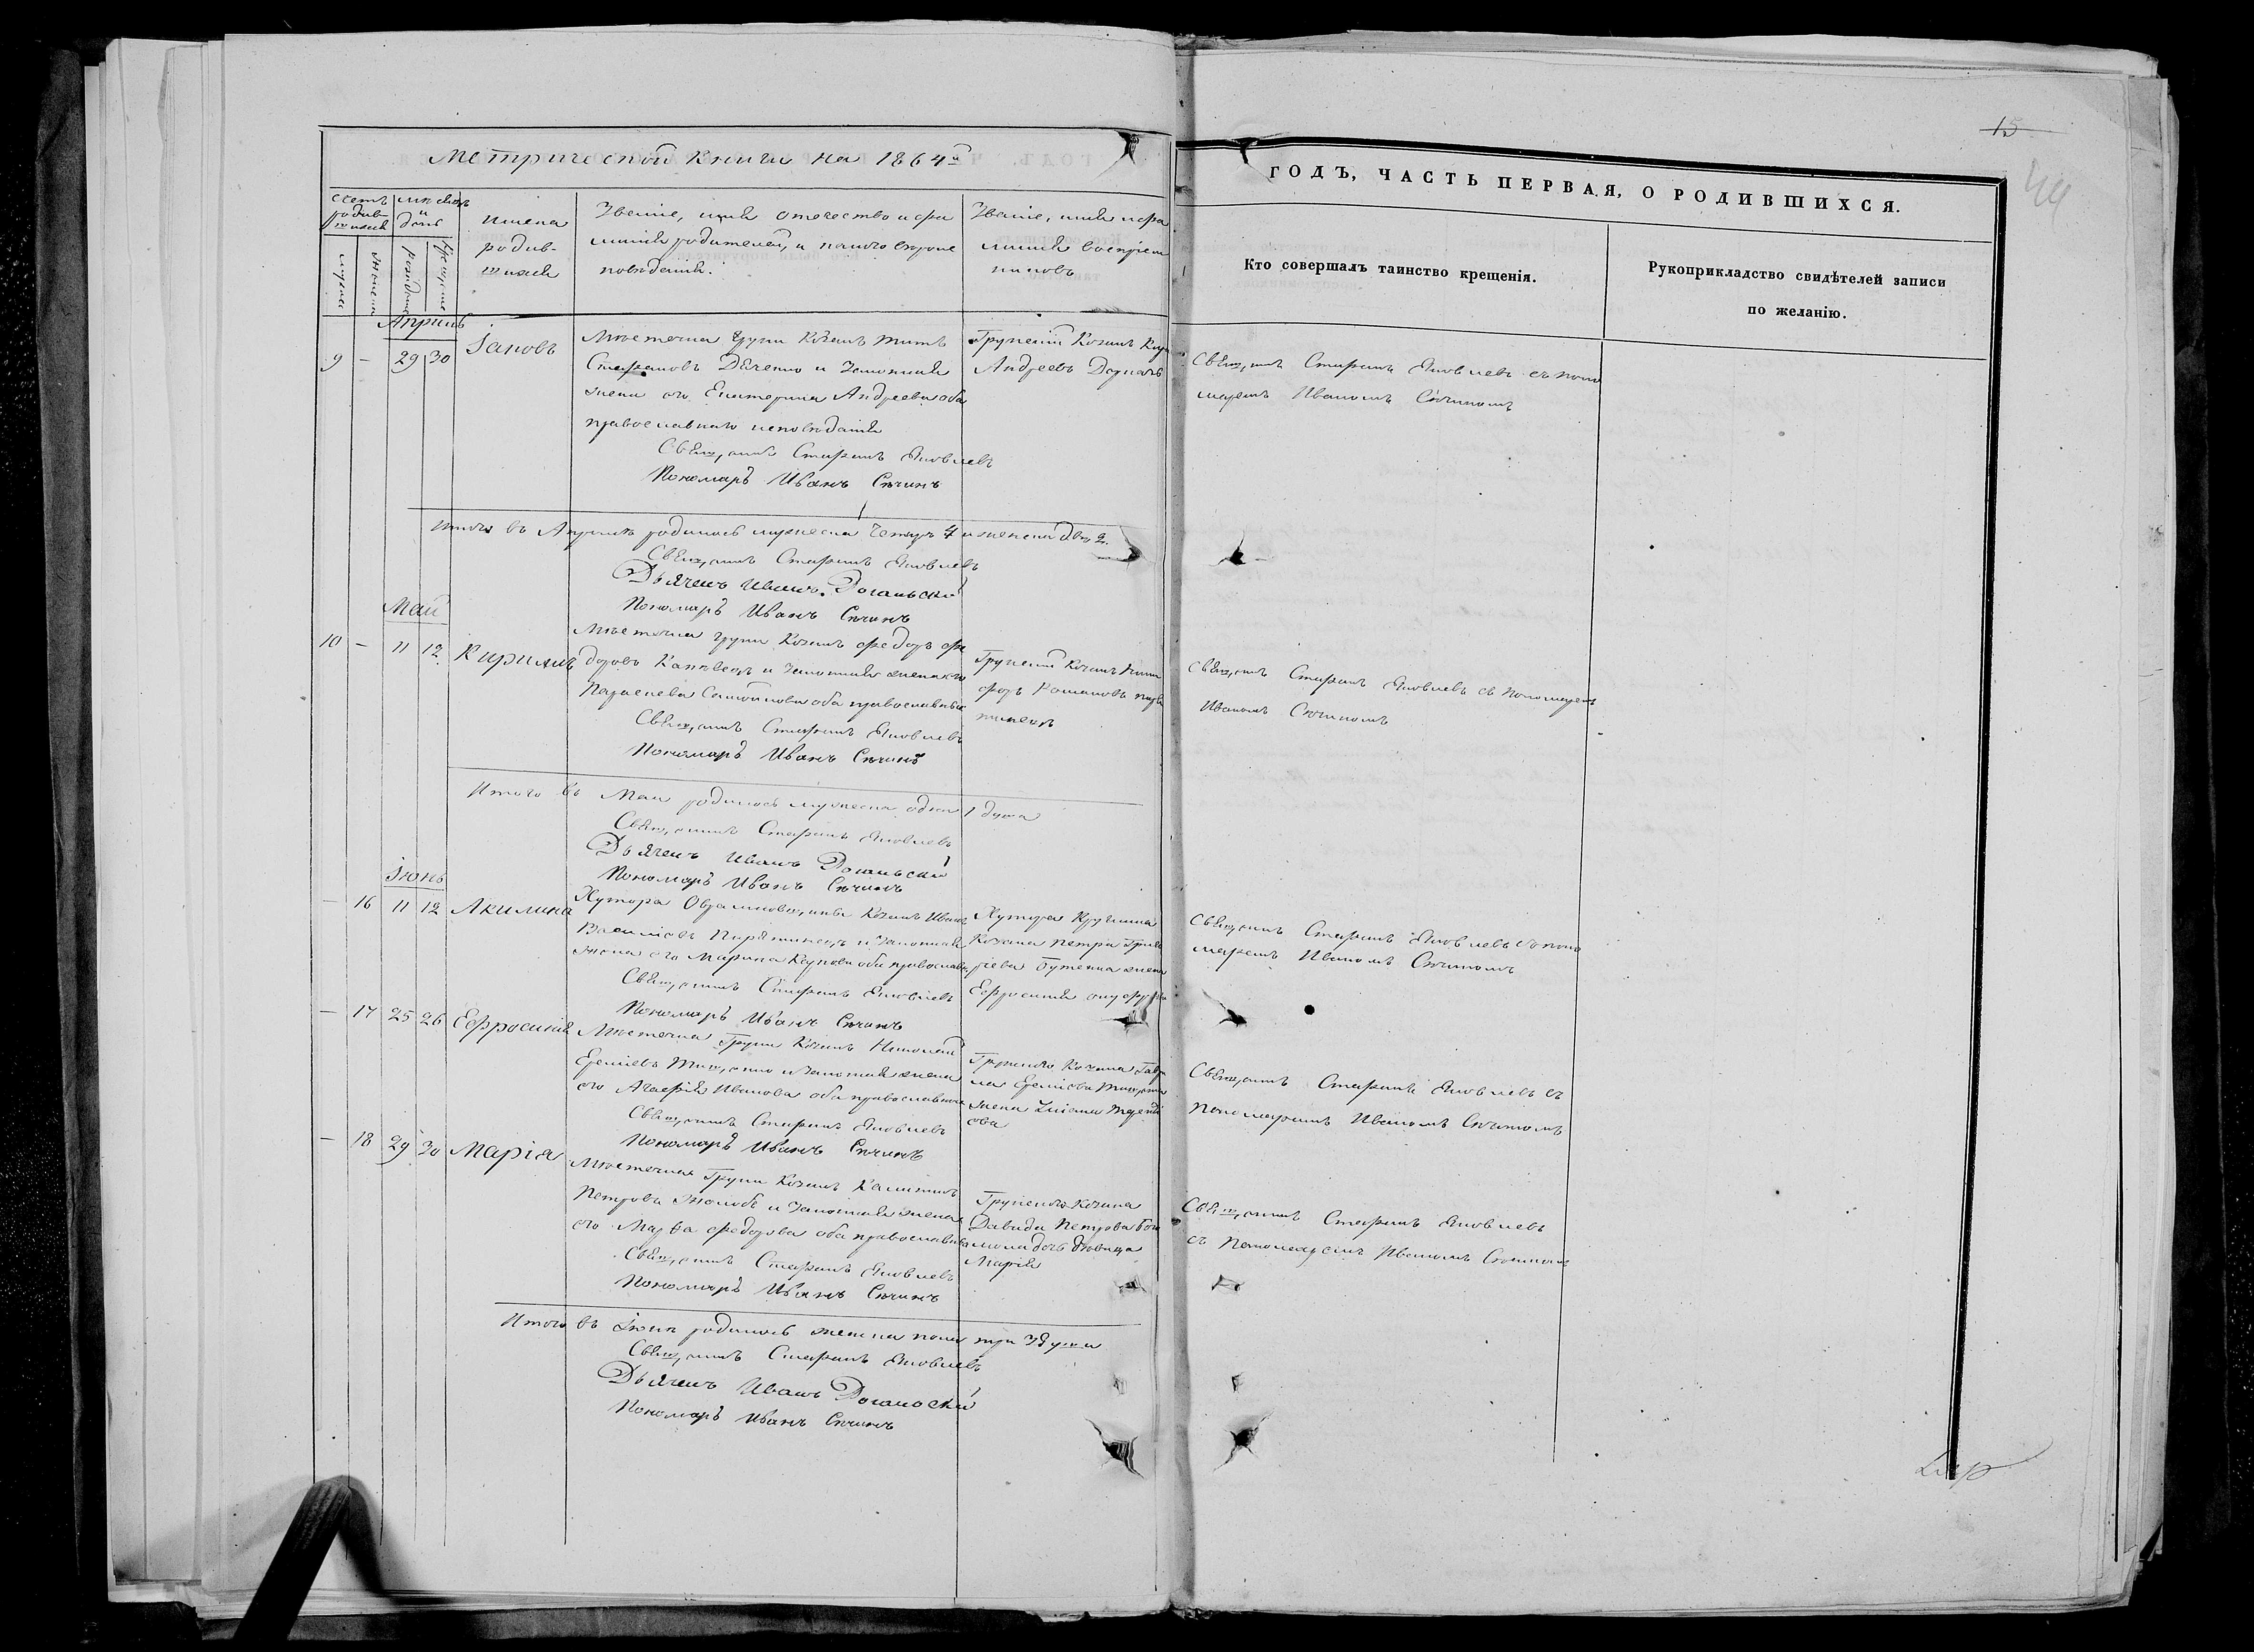 15
44
Метрической Книги на 1864й
ГОДЪ, ЧАСТЬ ПЕРВАЯ, О РОДИВШИХСЯ.
Счетъ родив-шихся
мѣсяцъ и день
мужеск
женска
рожденія
крещенія
имена
родив-
шихся
Званіе, имя отечество и фа
милія родителей, и какого вѣроис
повѣданія.
Званіе, имя и фа
милія воспріем
никовъ
Кто совершалъ таинство крещенія.
Рукоприкладство свидѣтелей записи
по желанію.
Апрѣль
9 – 29 30 Іаковъ
Мѣстечка Груни Козакъ Титъ
Стефановъ Дѣченко и Законная
жена его Екатерина Андреева оба
православнаго исповѣданія
Священникъ Стефанъ Яковлевъ
Пономарь Иванъ Сѣчинъ
Грунскій Козакъ
Андреевъ
Священникъ Стефанъ Яковлевъ съ поно
маремъ Иваномъ Сѣчиномъ
Итого въ Апрѣлѣ родилось мужеска четыре 4 и женска двѣ 2.
Священникъ Стефанъ Яковлевъ
Дьячекъ Иванъ
Пономарь Иванъ Сѣчинъ
Май
10 – 11 12 Кириллъ
Мѣстечка Груни Козакъ Федоръ Фе
доровъ и Законная жена его
Параскева оба православные
Священникъ Стефанъ Яковлевъ
Пономарь Иванъ Сѣчинъ
Грунскій Козакъ Ники
форъ Романовъ
Священникъ Стефанъ Яковлевъ съ Пономаремъ
Иваномъ Сѣчиномъ
Итого въ Маи родилось мужеска одна 1 душа
Священникъ Стефанъ Яковлевъ
Дьячекъ Иванъ
Пономарь Иванъ Сѣчинъ
Іюнь
– 16 11 12 Акилина
Хутора Козакъ Иванъ
Василіевъ Пирятинецъ и Законная
жена его Марина Карпова оба православн
Священникъ Стефанъ Яковлевъ
Пономарь Иванъ Сѣчинъ
Хутора
Козака Петра Григо
ріева Бутенка жена
Ефросинія
Священникъ Стефанъ Яковлевъ съ поно
маремъ Иваномъ Сѣчиномъ
– 17 25 26 Ефросинія
Мѣстечка Груни Козакъ Николай
Ереміевъ Тищенко и Законная жена
его Агафія Иванова оба православные
Священникъ Стефанъ Яковлевъ
Пономарь Иванъ Сѣчинъ
Грунского Козака Гаври
ла Ереміева Тищенка
жена
Священникъ Стефанъ Яковлевъ съ
пономаремъ Иваномъ Сѣчиномъ
– 18 29 30 Марія
Мѣстечка Груни Козакъ Калиникъ
Петровъ и Законная жена
его Марфа Федорова оба православные
Священникъ Стефанъ Яковлевъ
Пономарь Иванъ Сѣчинъ
Грунского Козака
Давида Петрова
дочь дѣвица
Марія
Священникъ Стефанъ Яковлевъ
съ Пономаремъ Иваномъ Сѣчиномъ
Итого въ Іюнѣ родилось женска пола три 3 души
Священникъ Стефанъ Яковлевъ
Дьячекъ Иванъ
Пономарь Иванъ Сѣчинъ